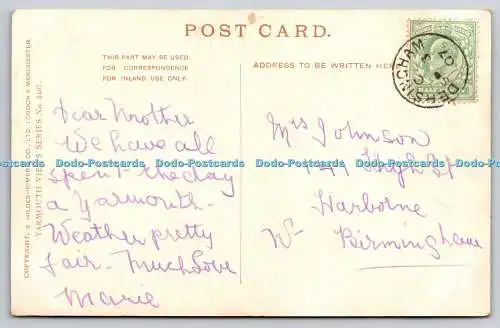 POST CARD.
THIS PART MAY BE USED
FOR CORRESPONDENCE
FOR INLAND USE ONLY.
ADDRESS TO BE WRITTEN HERE
Dear Mother
We have all
spent the day
a Yarmouth
Weather pretty
fair. Much Love
Marie
Mrs Johnson
High St
Harborne
Nr Birmingham
COPYRIGHT, E HILDESHEIMER & CO., LTD. LONDON & MANCHESTER.
YARMOUTH VIEWS SERIES No.
Dodo-Postcards Dodo-Postcards Dodo-Postcards Dodo-Postcards Dodo-Postcards Dodo-Postcards